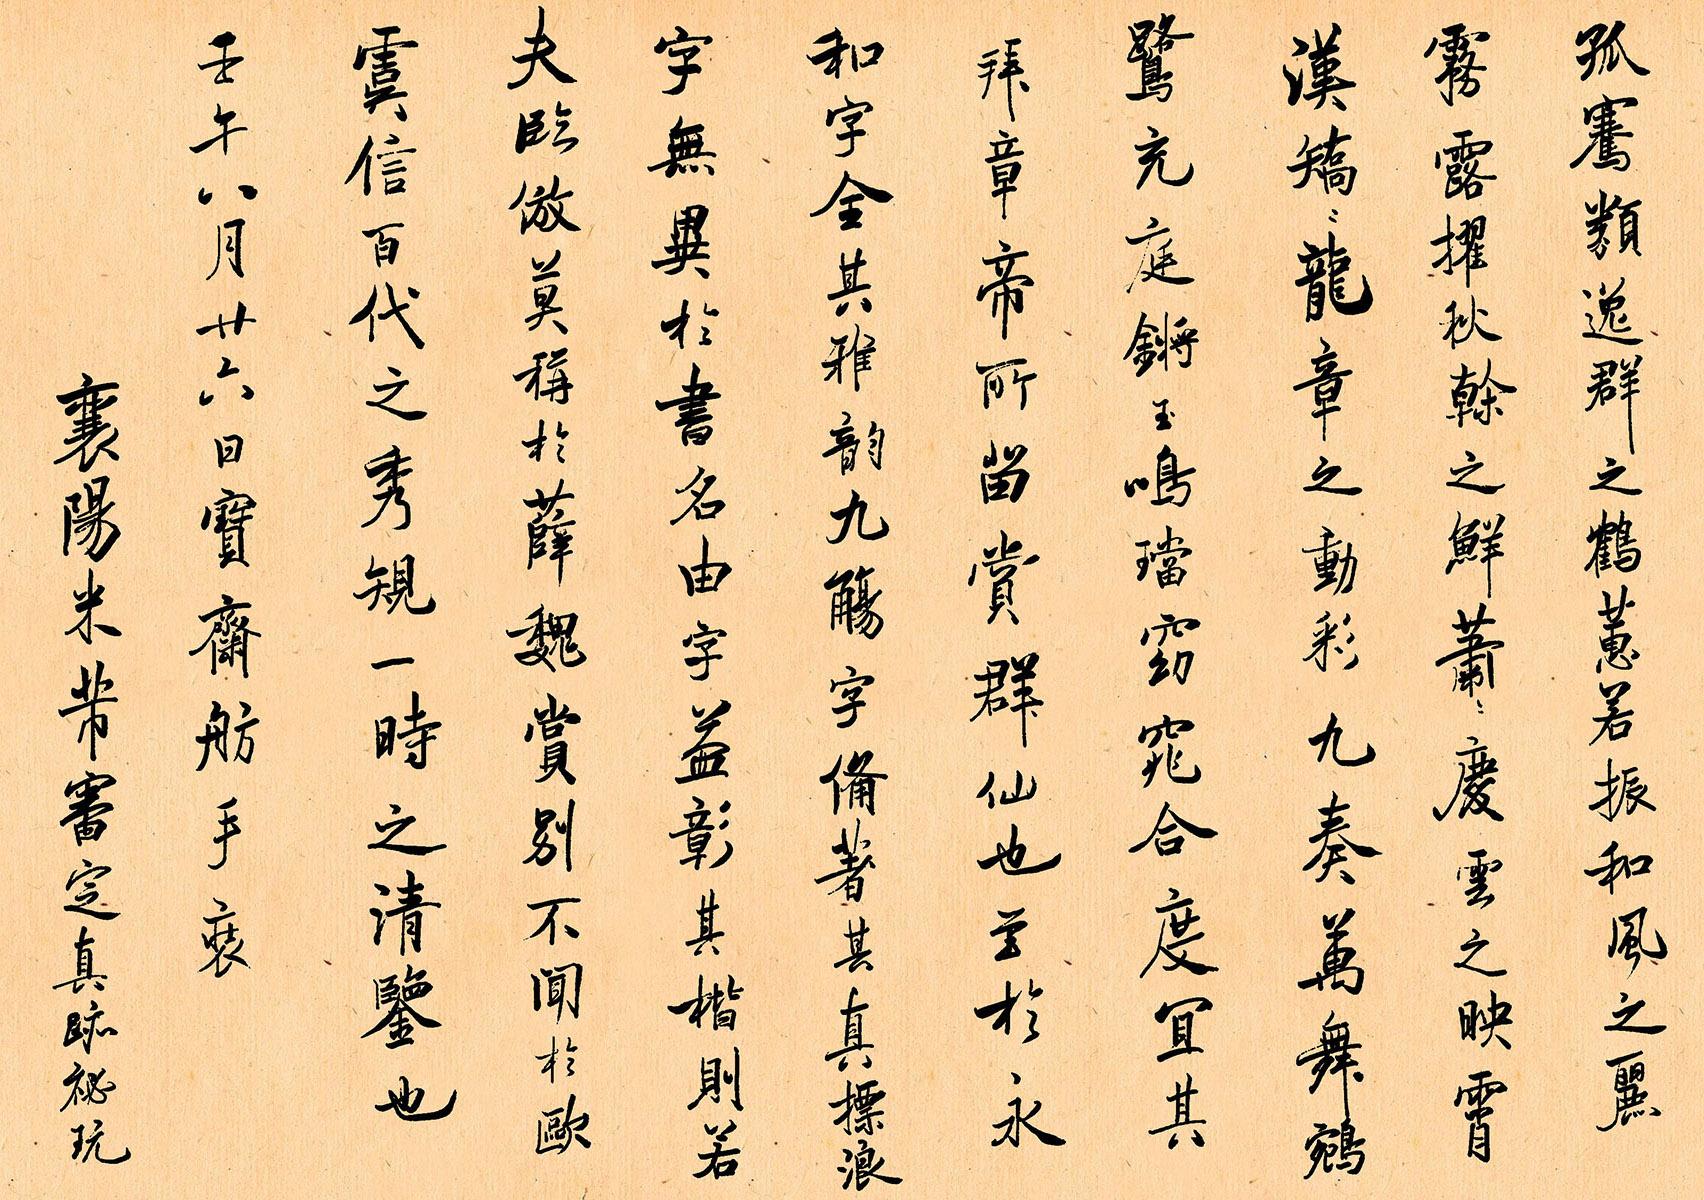 孤騫類逸群之鶴蕙若振和風之麗
霧露擢秋榦之鮮蕭〻慶雲之映霄
漢矯〻龍章之動彩九奏萬舞鵷
鷺充庭鏘玉鳴璫窈窕合度宜其
拜章帝所留賞群仙也至於永
和字全其雅韵九觴字備著其真標浪
字無異於書名由字益彰其楷則若
夫臨倣莫稱於薛魏賞別不聞於歐
虞信百代之秀規一時之清鑒也
壬午八月廿六日寶齋舫手裝
襄陽米芾審定真跡祕玩